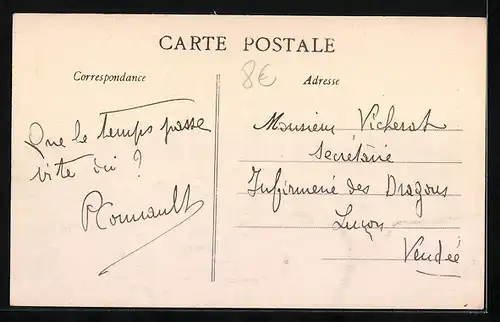 CARTE POSTALE
Correspondance
8€
Adresse
Que le temps passe
vite oui ?
Monsieur Vicherat
Secrétaire
Infirmerie des Dragons
Luçon
Vendée